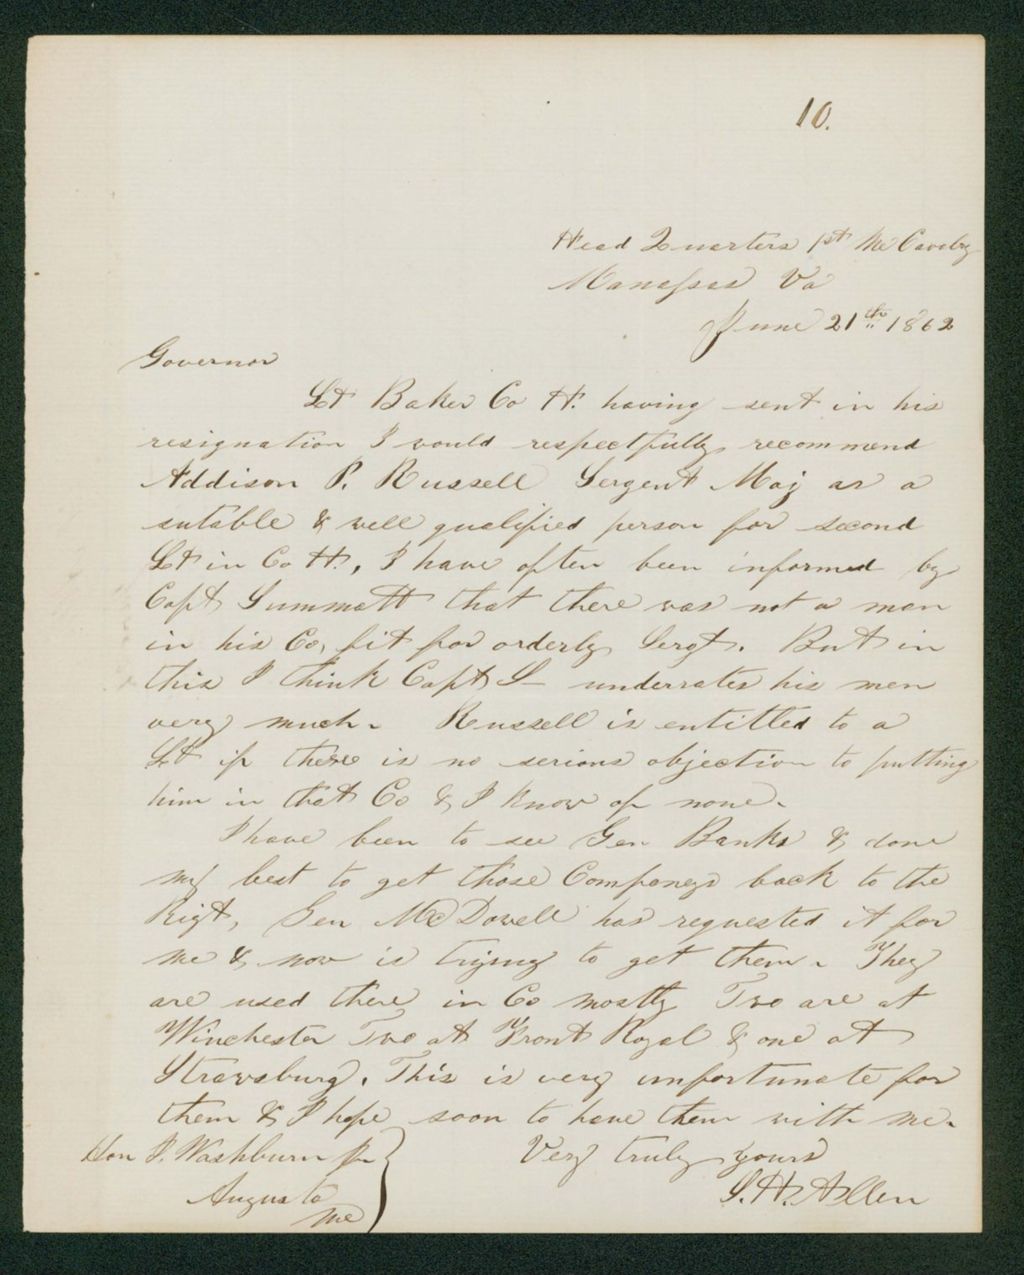 10.
Head Quarters 1st Me Cavelry
Manassas Va
June 21th 1862
Governor
Lt Baker Co H. having sent in his
resignation I would respectfully recommend
Addison P. Russell Sergent Maj as a
sutable & well qualified person for second
Lt in Co H., I have often been informed by
Capt Summatt that there was not a man
in his Co, fit for orderly Sergt. But in
this I think Capt S— underrates his men
very much. Russell is entitled to a
Lt if there is no serious objection to putting
him in that Co & I know of none.
I have been to see Gen Banks & done
my best to get those Companys back to the
Rigt, Gen McDowell has requested it for
me & now is trying to get them. They
are used there in Co mostly Two are at
Winchester Two at Front Royal & one at
Strawsburg. This is very unfortunate for
them & I hope soon to have them with me.
Very truly yours
S. H. Allen
Hon I. Washburn Jr
Augusta
Me